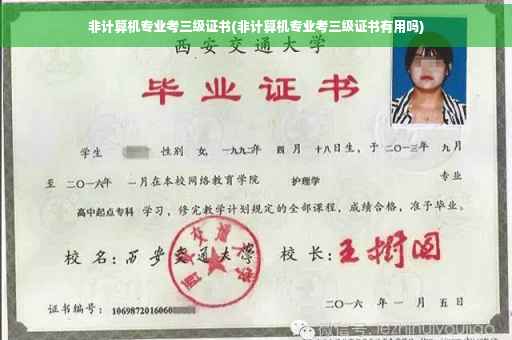 非计算机专业考三级证书(非计算机专业考三级证书有用吗)
西安交通大学
毕业证书
学生 性别 女，一九九二年 四 月 十八日生，于 二〇一三年 九月
至 二〇一六年 一月在本校网络教育学院 护理学 专业
高中起点专科 学习，修完教学计划规定的全部课程，成绩合格，准予毕业。
校 名：西安交通大学 校 长：王树国
证书编号：1069872016060
二〇一六 年 一 月 五 日
微信号: jezhihuiyoujiao